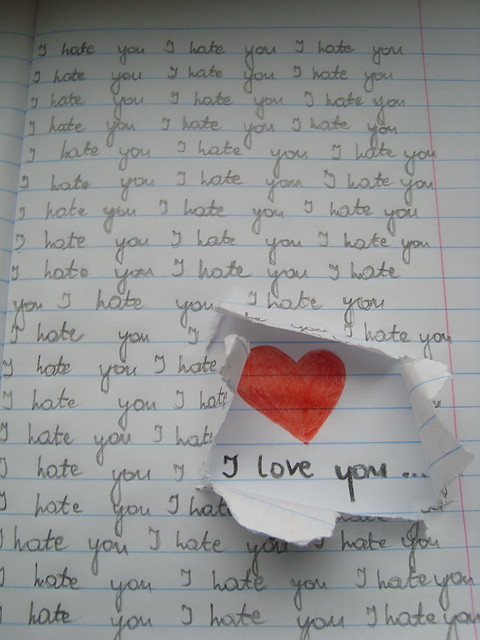 I hate you I hate you I hate you
I hate you I hate you I hate you
I hate you I hate you I hate you
I hate you I hate you I hate you
I hate you I hate you I hate you
I hate you I hate you I hate you
I hate you I hate you I hate you
I hate you I hate you I hate you
I hate you I hate you I hate
you I hate you I hate you
I hate you I I hate you
I hate you I hate
I hate you I hate
I hate you I hate
I hate you I
I love you ...
I hate you I hate
I hate you I hate you I hate you
I hate you I hate you I hate you
I hate you I hate you I hate you